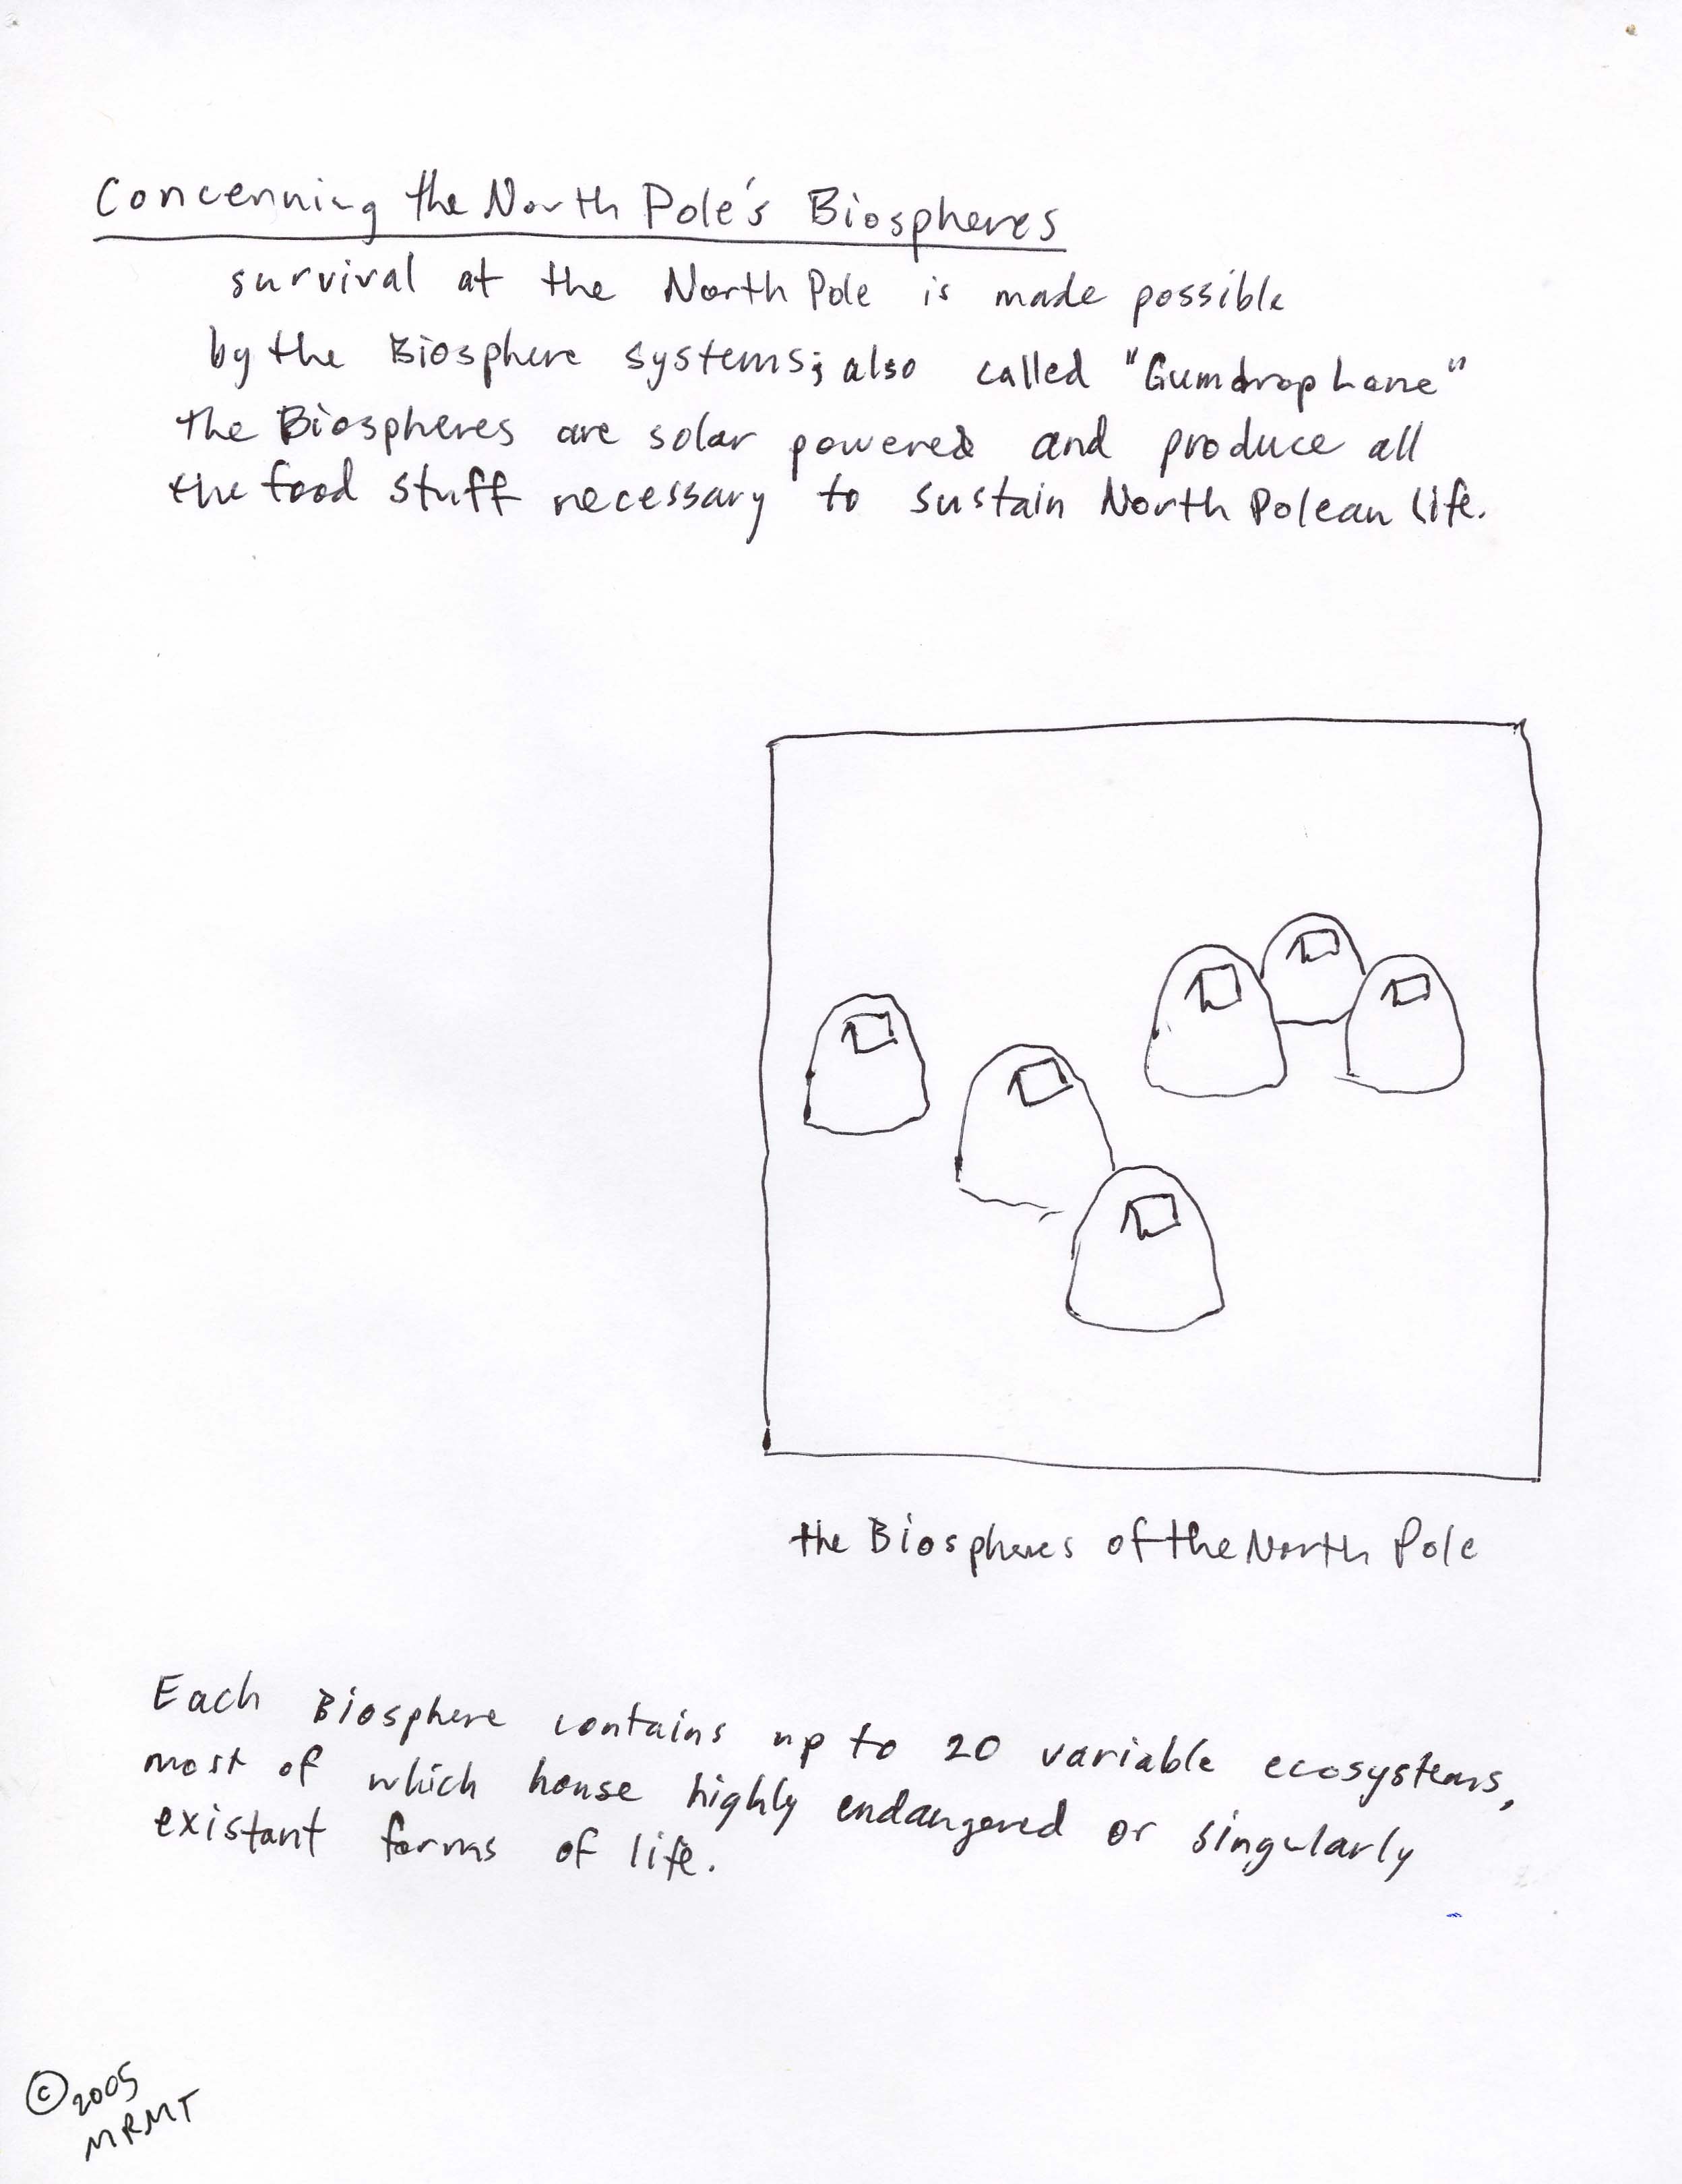 Concerning the North Pole's Biospheres
survival at the North Pole is made possible
by the Biosphere systems; also called "Gumdrop Lane"
the Biospheres are solar powered and produce all
the food stuff necessary to sustain North Polean life.
the Biospheres of the North Pole
Each Biosphere contains up to 20 variable ecosystems,
most of which house highly endangered or singularly
existant forms of life.
©2005
MRMT